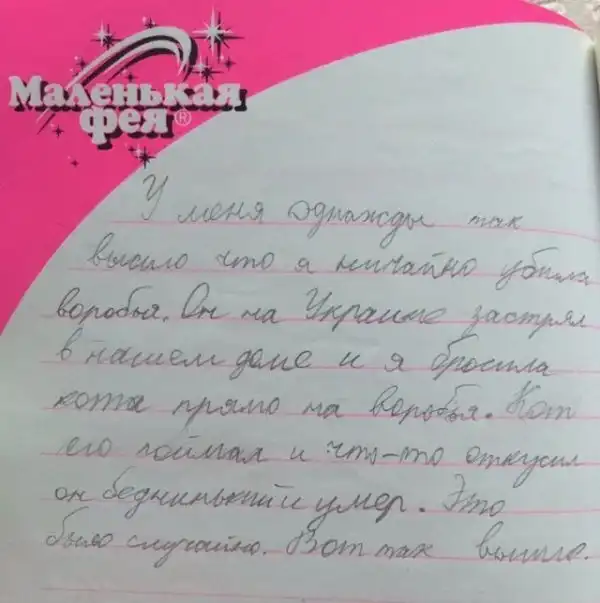 Маленькая
фея®
У меня однажды так
высило что я ничайно убила
воробья. Он на Украине застрял
в нашем доме и я бросила
кота прямо на воробья. Кот
его поймал и что-то откусил
он беднинький и умер. Это
было случайно. Вот так вышло.